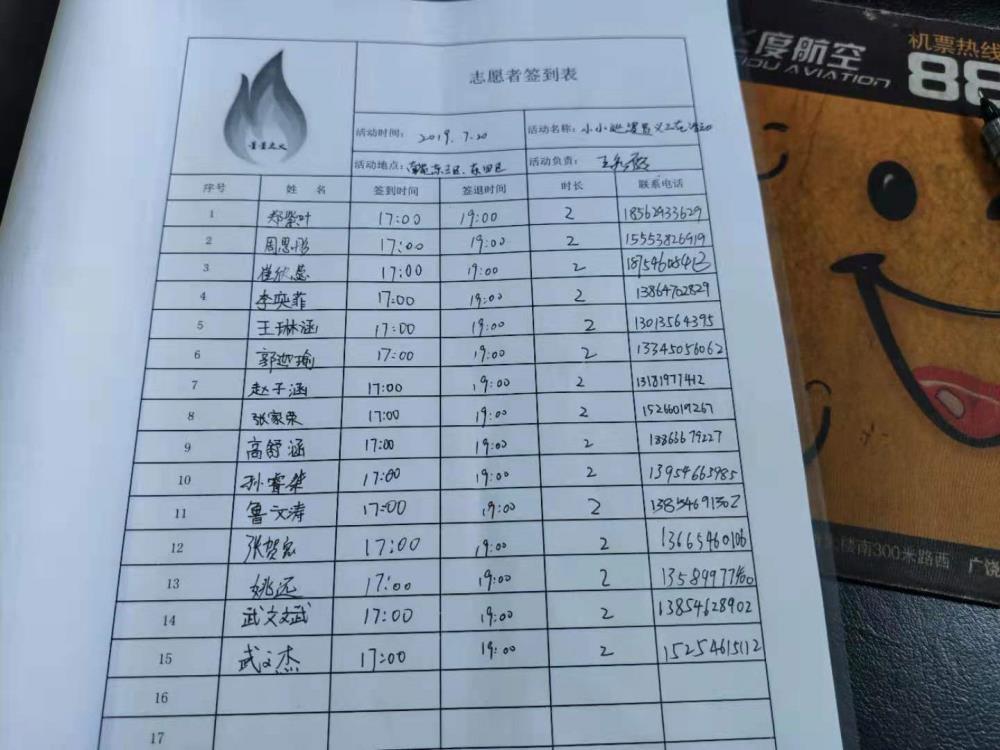 星星之火
志愿者签到表
活动时间： 2019.7.20 活动名称：小小地
活动地点： 活动负责：
序号 姓名 签到时间 签退时间 时长 联系电话
1 郑紫叶 17:00 19:00 2 18562933629
2 周思彤 17:00 19:00 2 15553826919
3 崔欣蕊 17:00 19:00 2
4 李奕菲 17:00 19:00 2 13864702829
5 王琳涵 17:00 19:00 2 13013564395
6 郭迦瑜 17:00 19:00 2 13345056062
7 赵子涵 17:00 19:00 2 13181977412
8 张家荣 17:00 19:00 2 15266019267
9 高舒涵 17:00 19:00 2 18866679227
10 孙睿桀 17:00 19:00 2 13954665985
11 鲁文涛 17:00 19:00 2 13854691302
12 张贺宏 17:00 19:00 2 13665460106
13 姚远 17:00 19:00 2
14 武文斌 17:00 19:00 2 13854628902
15 武文杰 17:00 19:00 2 15254615112
16
17
度航空
DU AVIATION
机票热线
88
楼南300米路西 广饶